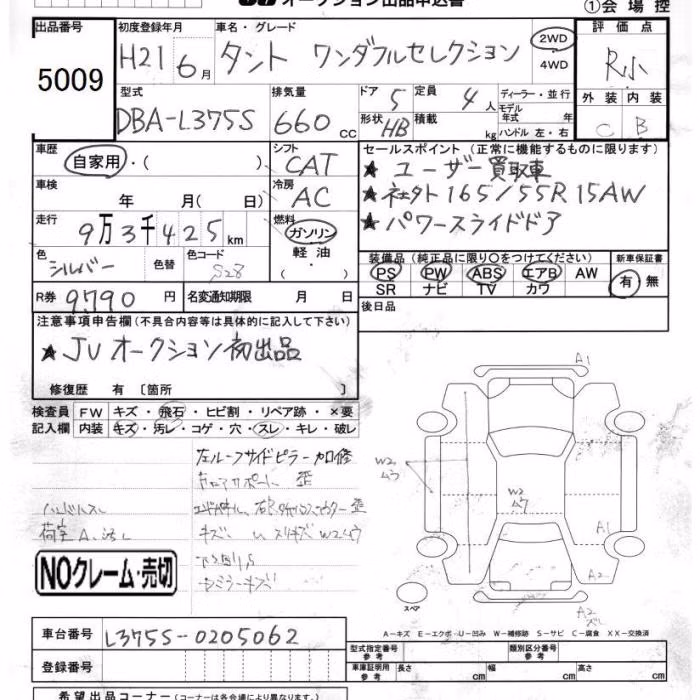 オークション出品申込書
①会場控
出品番号 5009
初度登録年月 H21 6月
車名・グレード タント ワンダフルセレクション
2WD
4WD
評価点 R小
外装 C 内装 B
型式 DBA-L375S
排気量 660cc
ドア 5 定員 4人
形状 HB 積載 kg
ディーラー・並行
モデル年式 年式
ハンドル 左・右
車歴 自家用・( )
シフト CAT
車検 年 月(日)
冷房 AC
走行 9万3千425km
燃料 ガソリン
軽油
・( )
色 シルバー 色替 色コード S28
R券 9,790円 名変通知期限 月 日
セールスポイント(正常に機能するものに限ります)
★ユーザー買取車
★社外 165/55R15AW
★パワースライドドア
装備品(純正品に限り○をつけてください) 新車保証書
PS PW ABS エアB AW 有・無
SR ナビ TV カワ
後日品
注意事項申告欄(不具合内容等は具体的に記入して下さい)
★JUオークション初出品
修復歴 有〔箇所
検査員 FW キズ・飛石・ヒビ割・リペア跡・×要
記入欄 内装 キズ・汚レ・コゲ・穴・スレ・キレ・破レ
左ルーフサイドピラー加修
ハンドルスレ
荷室
キズ
W2ウ
W2
ウ
W2
ウ
A1
A1
A2
A2
スペア
NOクレーム・売切
A−キズ E−エクボ・U−凹み W−補修跡 S−サビ C−腐食 XX−交換済
車台番号 L375S-0205062
登録番号
型式指定番号 参考 類別区分番号 参考
車庫証明用 参考 長さ cm 幅 cm 高さ cm
希望出品コーナー(コーナーは各会場により異なります。)